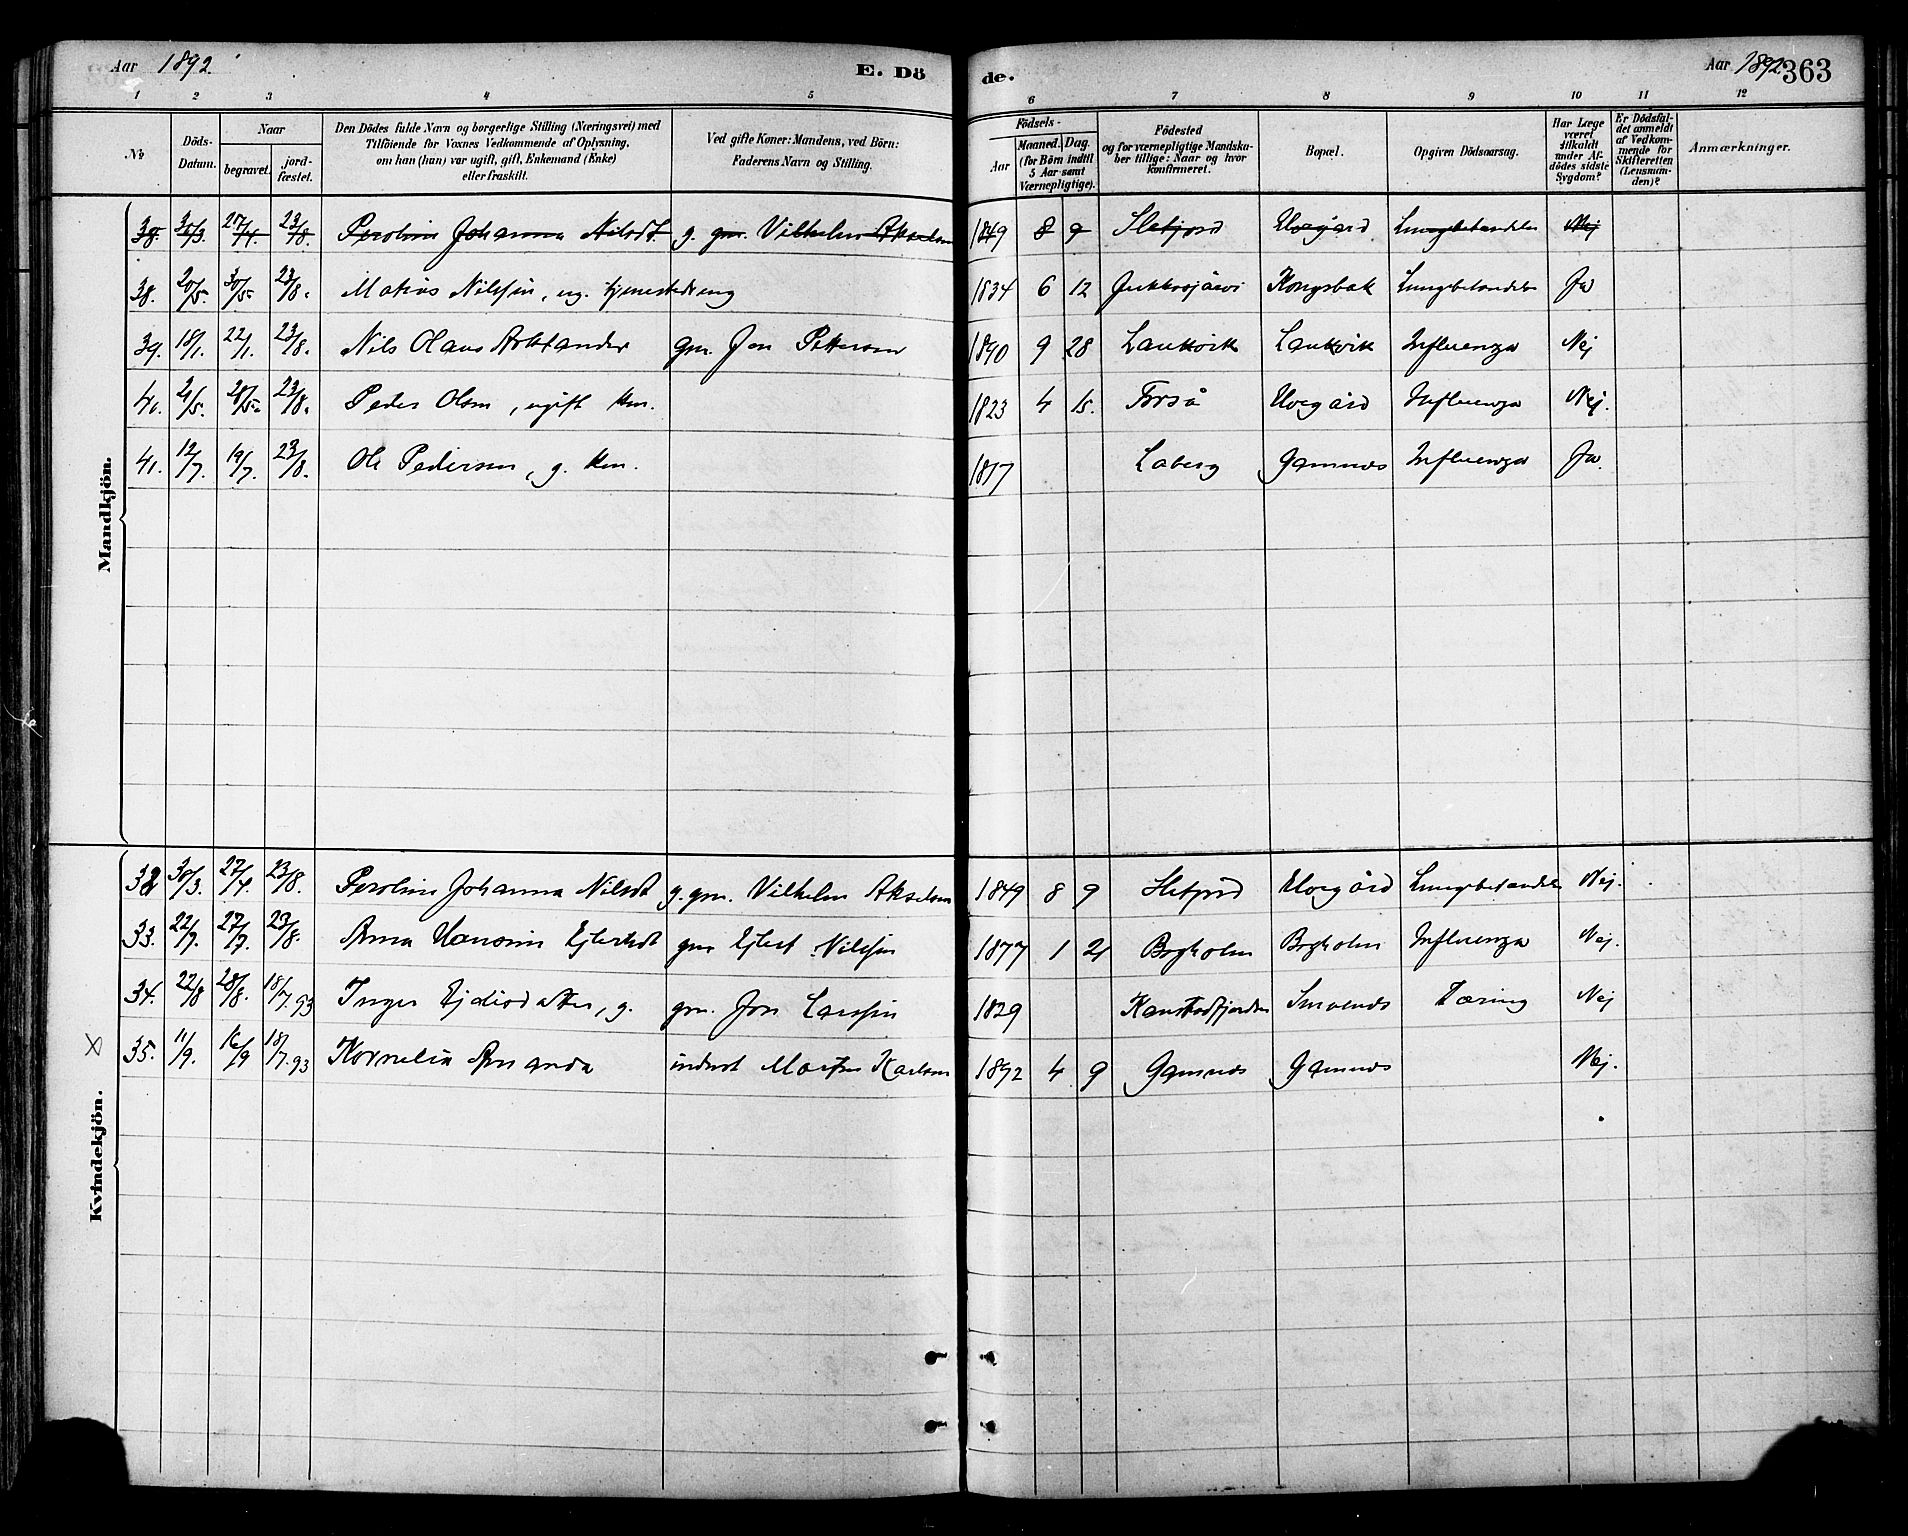 Aar 1892. E. Dö
de. Aar 1892 363
1 2 3 4 5 6 7 8 9 10 11 12
No
Döds-Datum.
Naar
begravet.
jordfæstet.
Den Dödes fulde Navn og borgerlige Stilling (Næringsvei) med
Tilföiende for Voxnes Vedkommende af Oplysning,
om han (hun) var ugift, gift, Enkemand (Enke)
eller fraskilt.
Ved gifte Koner: Mandens, ved Börn:
Faderens Navn og Stilling.
Födsels-
Aar
Maaned. Dag.
(for Börn indtil
5 Aar samt
Værnepligtige).
Födested
og for værnepligtige Mandska-
ber tillige: Naar og hvor
konfirmeret.
Bopæl.
Opgiven Dödsaarsag.
Har Læge
været
tilkaldt
under Af-
dödes sidste
Sygdom?
Er Dödsfal-
det anmeldt
af Vedkom-
mende for
Skifteretten
(Lensman-
den)?
Anmærkninger.
Mandkjön.
38. 30/3. 27/4. 23/8. Peroline Johanna Nilsdt. g. gm. Vilhelm Akselsen 1849 8 9 Slefjord Hvegård Lungebetændelse Nej
38. 20/5. 30/5. 23/8. Matias Nilssen, ug. tjenestedreng 1834 6 12 Jukkasjärvi Kongsbak Lungebetændelse Ja
39. 18/1. 22/1. 23/8. Nils Olaus gm. Jon Pettersen 1890 9 28 Laukvik Laukvik Influenza Nej
40. 21/5. 28/5. 23/8. Peder Olsen, ugift km. 1823 4 15. Forså Hvegård Influenza Nej.
41. 12/7. 19/7. 23/8. Ole Pedersen, g. km. 1817 Laberg Gamnes Influenza Ja.
Kvindekjön.
32 30/3. 27/4. 23/8. Peroline Johanna Nilsdt g. gm. Vilhelm Akselsen 1849 8 9 Slefjord Hvegård Lungebetændelse Nej.
33. 22/7. 27/7. 23/8. Anna Hansine Ejlertsdt gm Ejlert Nilssen 1877 1 21 Bogholm Bogholm Influenza Nej.
34. 22/8 28/8. 18/7.93 Inger, g. gm. Jon Larssen 1829 Kanstadfjorden Smalnes Tæring Nej
35. 11/9. 16/9 18/7.93 Kornelia Amanda inderst Morten Karlsen 1892 4 9 Gamnes Gamnes Nej.